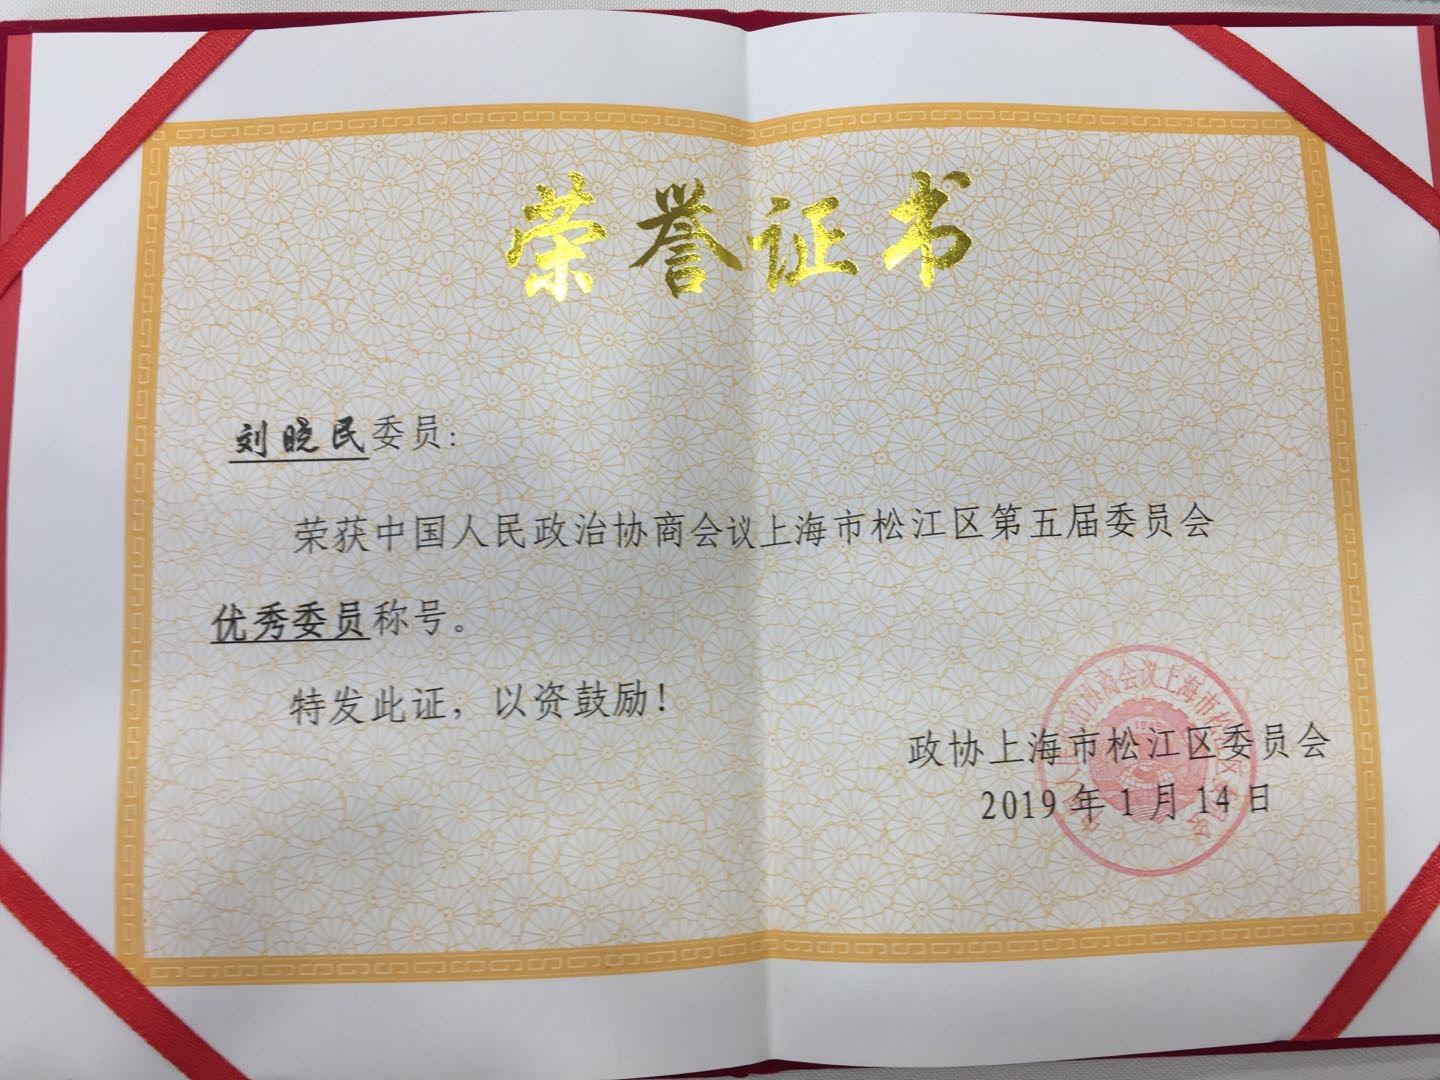 荣誉证书
刘晓民委员:
荣获中国人民政治协商会议上海市松江区第五届委员会
优秀委员称号。
特发此证，以资鼓励！
政协上海市松江区委员会
2019年1月14日
协商会议上海市松